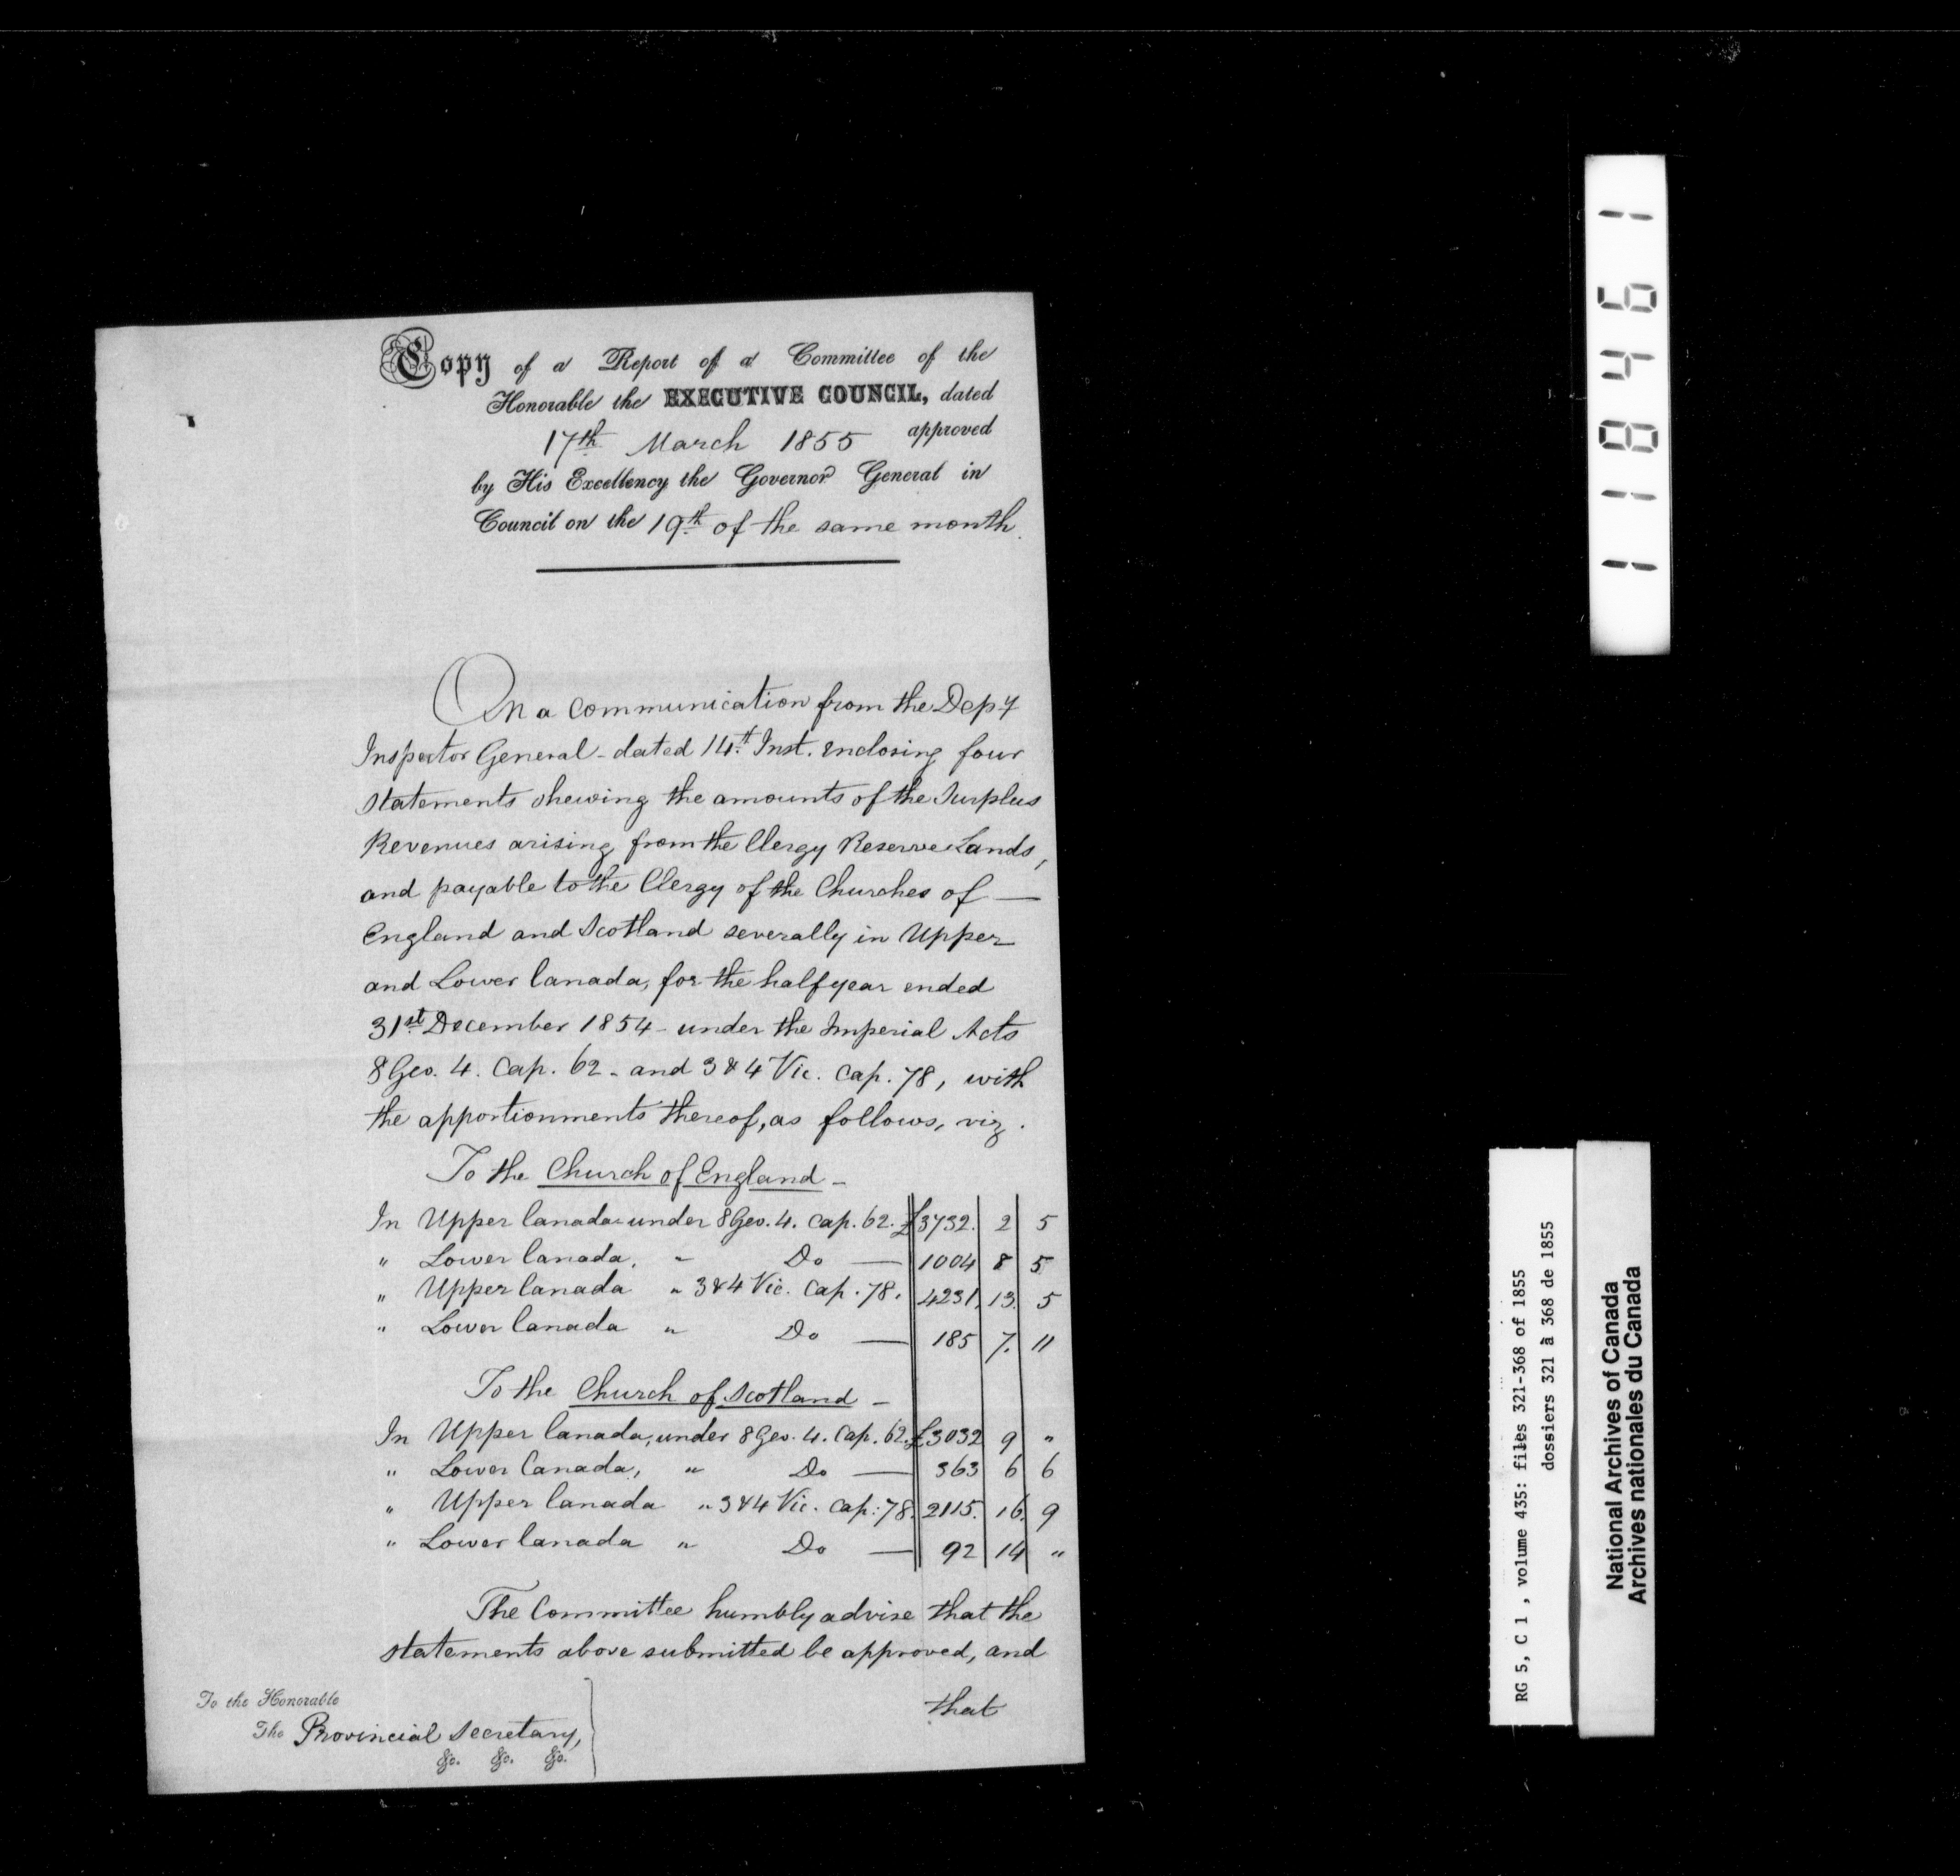 Copy of a Report of a Committee of the
Honorable the EXECUTIVE COUNCIL, dated
17th March 1855 approved
by His Excellency the Governor General in
Council on the 19th of the same month.
On a communication from the Depy
Inspector General - dated 14th Inst. enclosing four
statements shewing the amounts of the Surplus
Revenues arising from the Clergy Reserve Lands,
and payable to the Clergy of the Churches of —
England and Scotland severally in Upper
and Lower Canada, for the half year ended
31st December 1854 - under the Imperial Acts
8 Geo. 4. Cap. 62 - and 3 & 4 Vic. Cap. 78, with
the apportionments thereof, as follows, viz.
To the Church of England -
In Upper Canada under 8 Geo. 4. Cap. 62. £3732. 2 5
" Lower Canada, " Do — 1004 8 5
" Upper Canada " 3 & 4 Vic. Cap. 78. 4231. 13. 5
" Lower Canada " Do — 185 7. 11
To the Church of Scotland -
In Upper Canada, under 8 Geo. 4. Cap. 62. £3032 9 "
" Lower Canada, " Do — 363 6 6
" Upper Canada " 3 & 4 Vic. Cap: 78. 2115. 16. 9
" Lower Canada " Do — 92 14 "
The Committee humbly advise that the
statements above submitted be approved, and
that
To the Honorable
The Provincial Secretary,
&c. &c. &c.
118461
RG 5, C 1 , volume 435: files 321-368 of 1855
dossiers 321 à 368 de 1855
National Archives of Canada
Archives nationales du Canada